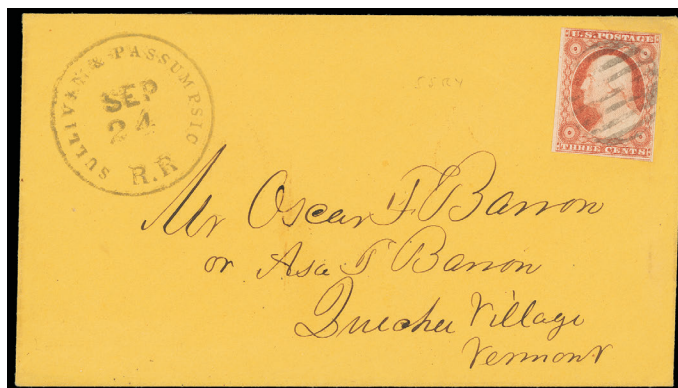 SULLIVAN & PASSUMPSIC
SEP
24
R.R
U.S. POSTAGE
THREE CENTS
Mr Oscar F Barron
or Asa T Barron
Quechee Village
Vermont